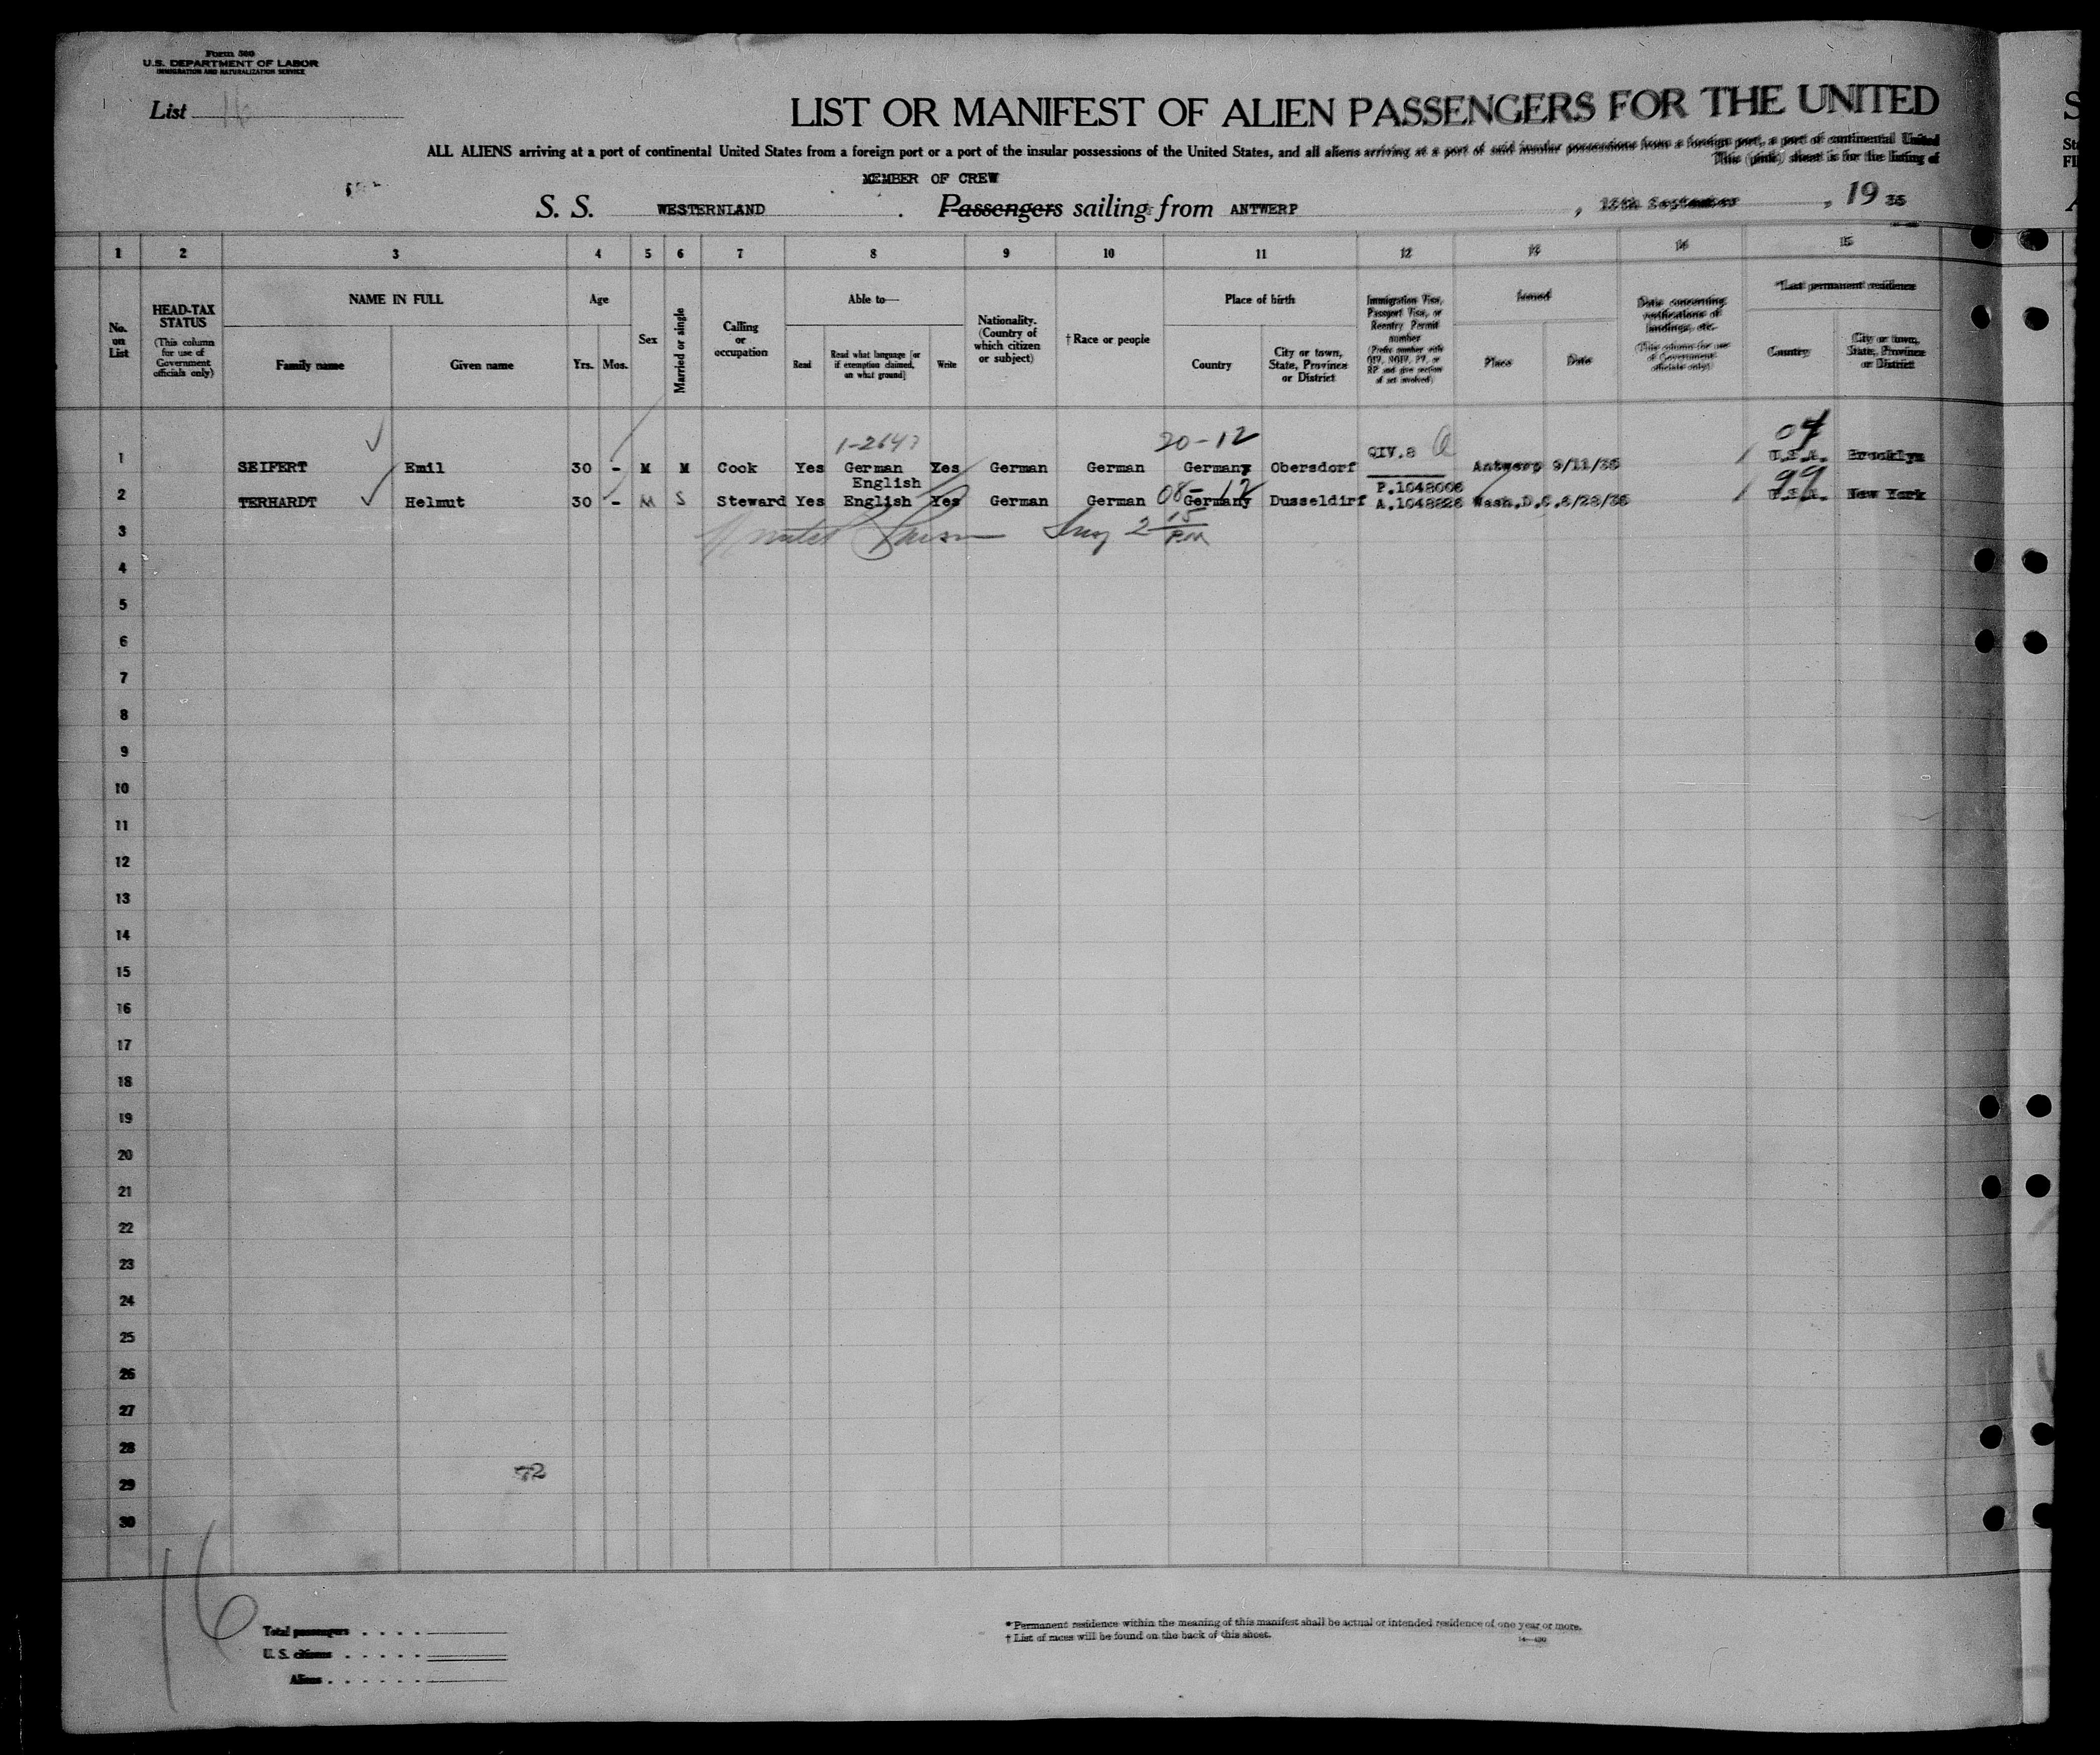 Form 500
U.S. DEPARTMENT OF LABOR
IMMIGRATION AND NATURALIZATION SERVICE
List 16
LIST OR MANIFEST OF ALIEN PASSENGERS FOR THE UNITED
ALL ALIENS arriving at a port of continental United States from a foreign port or a port of the insular possessions of the United States, and all aliens arriving at a port of said insular possessions from a foreign port, a port of continental United
This (pink) sheet is for the listing of
MEMBER OF CREW
S. S. WESTERNLAND . Passengers sailing from ANTWERP , 13th September , 19 35
1 2 3 4 5 6 7 8 9 10 11 12 13 14 15
No. on List
HEAD-TAX STATUS (This column for use of Government officials only)
NAME IN FULL
Family name
Given name
Age
Yrs. Mos.
Sex
Married or single
Calling or occupation
Able to—
Read
Read what language [or if exemption claimed, on what ground]
Write
Nationality. (Country of which citizen or subject)
† Race or people
Place of birth
Country
City or town, State, Province or District
Immigration Visa, Passport Visa, or Reentry Permit number (Prefix number with QIV, NQIV, PV, or RP and give section of act involved)
Issued
Place
Date
Data concerning verifications of landings, etc. (This column for use of Government officials only)
*Last permanent residence
Country
City or town, State, Province or District
1-2647 20-12 04
1 SEIFERT Emil 30 - M M Cook Yes German English Yes German German Germany Obersdorf QIV.8 Antwerp 9/11/35 U.S.A. Brooklyn
08-12 99
2 TERHARDT Helmut 30 - M S Steward Yes English Yes German German Germany Dusseldirf P.1048006 A.1048828 Wash.D.C.8/28/35 U.S.A. New York
3
2 15 PM
4
5
6
7
8
9
10
11
12
13
14
15
16
17
18
19
20
21
22
23
24
25
26
27
28
29
30
16
Total passengers . . . .
U. S. citizens . . . . .
Aliens . . . . . .
* Permanent residence within the meaning of this manifest shall be actual or intended residence of one year or more.
† List of races will be found on the back of this sheet.